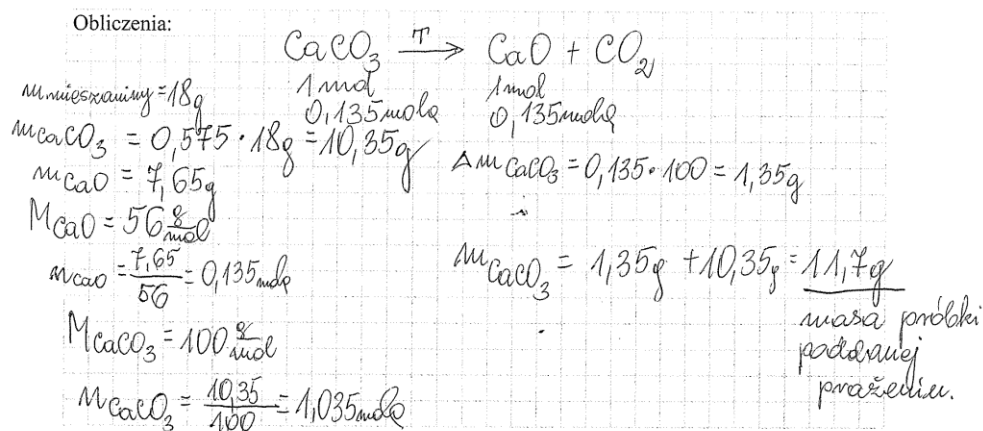 Obliczenia:
CaCO₃ —T→ CaO + CO₂
1 mol 1 mol
0,135 mola 0,135 mola
m mieszaniny = 18g
mCaCO₃ = 0,575 · 18g = 10,35g
mCaO = 7,65g
MCaO = 56 g/mol
nCaO = 7,65/56 = 0,135 mola
MCaCO₃ = 100 g/mol
nCaCO₃ = 10,35/100 = 1,035 mola
Δ mCaCO₃ = 0,135 · 100 = 1,35g
mCaCO₃ = 1,35g + 10,35g = 11,7g
masa próbki
poddanej
prażeniu.